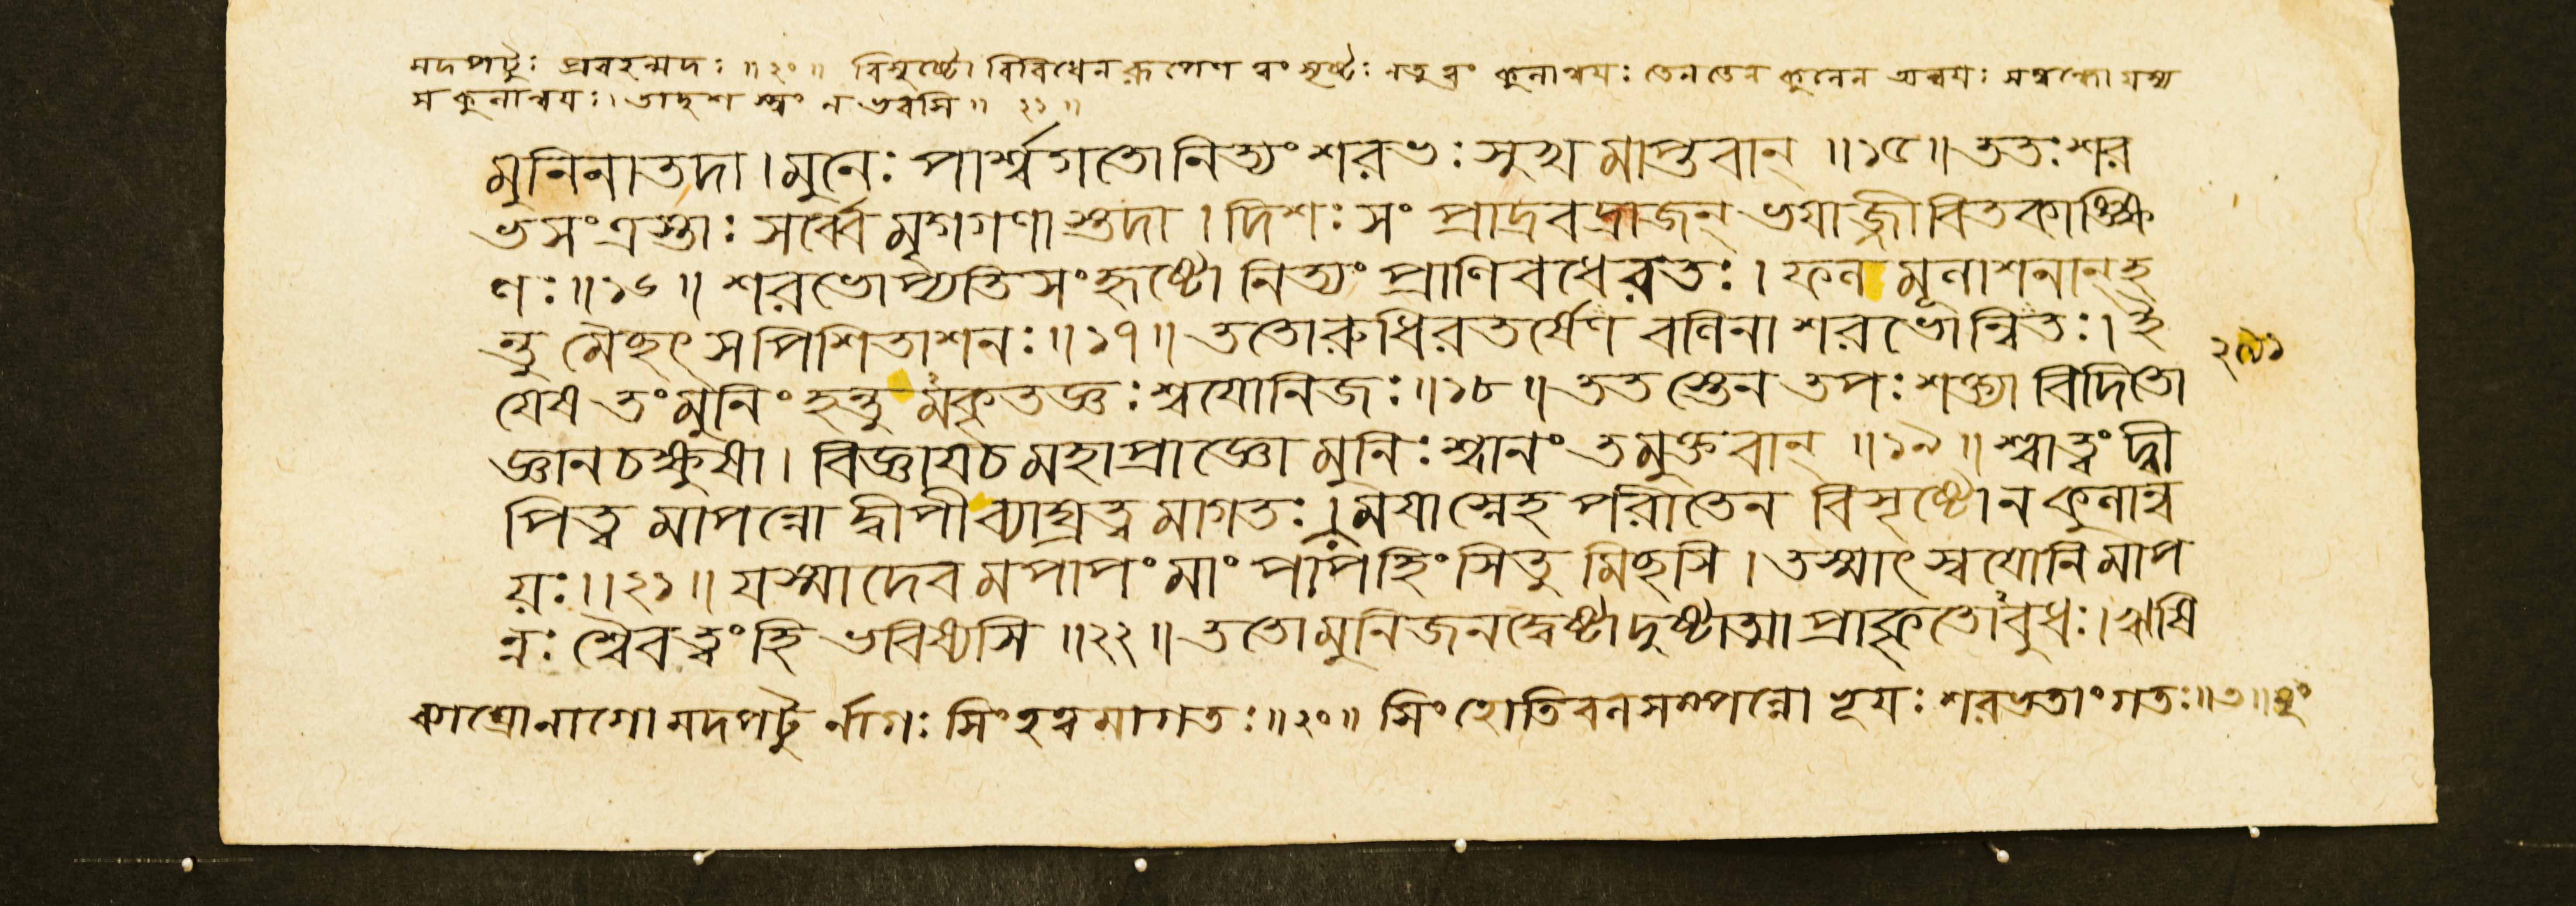 মদপটুঃ প্রবহন্মদঃ ॥২০॥ বিসৃষ্টো বিবিধেন রূপেণ ত্বং সৃষ্টঃ নতু ত্বং কুলান্বয়ঃ তেন তেন কুলেন অন্বয়ঃ সম্বন্ধো যস্য
স কুলান্বয়ঃ। তাদৃশ স্ত্বং ন ভবসি॥ ২১॥
মুনিনাতদা। মুনেঃ পার্শ্বগতোনিত্যং শরভঃ সুখমাপ্তবান্ ॥১৫॥ ততঃ শর
ভসংত্রস্তাঃ সর্ব্বে মৃগগণাস্তদা। দিশঃ সং প্রাদ্রবদ্রাজন্ ভয়াজ্জীবিতকাঙ্ক্ষি
ণঃ॥১৬॥ শরভোপ্যতিসংহৃষ্টো নিত্যং প্রাণিবধেরতঃ। ফলমূলাশনান্হ
ন্তু মৈছৎ সপিশিতাশনঃ॥১৭॥ ততোরুধিরতর্ষেণ বলিনা শরভোন্বিতঃ। ই
যেষ তংমুনিং হন্তুমকৃতজ্ঞঃ শ্বযোনিজঃ॥১৮॥ ততস্তেন তপঃশক্ত্যা বিদিতো
জ্ঞানচক্ষুষা। বিজ্ঞায়চ মহাপ্রাজ্ঞো মুনিঃ শ্বানং তমুক্তবান্ ॥১৯॥ শ্বাত্বং দ্বী
পিত্বমাপন্নো দ্বীপীব্যাঘ্রত্বমাগতঃ। ময়াস্নেহপরীতেন বিসৃষ্টোন কুলান্ব
য়ঃ॥২১॥ যস্মাদেবমপাপং মাং পাপহিংসিতুমিছসি। তস্মাৎ স্বযোনিমাপ
ন্নঃ শ্বৈবত্বংহি ভবিষ্যসি ॥২২॥ ততোমুনিজনদ্বেষ্টাদুষ্টাত্মা প্রাকৃতোবুধঃ। ঋষি
ব্যাঘ্রোনাগো মদপটু র্নাগঃ সিংহত্বমাগতঃ॥২০॥ সিংহোতিবলসম্পন্নো ভূয়ঃ শরভতাংগতঃ॥